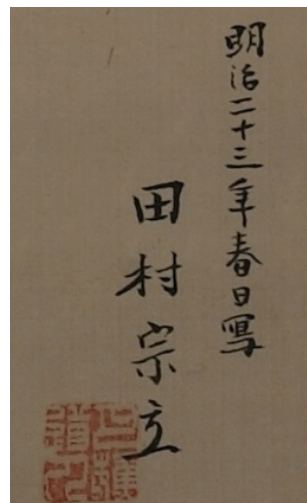 明治二十三年春日寫
田村宗立